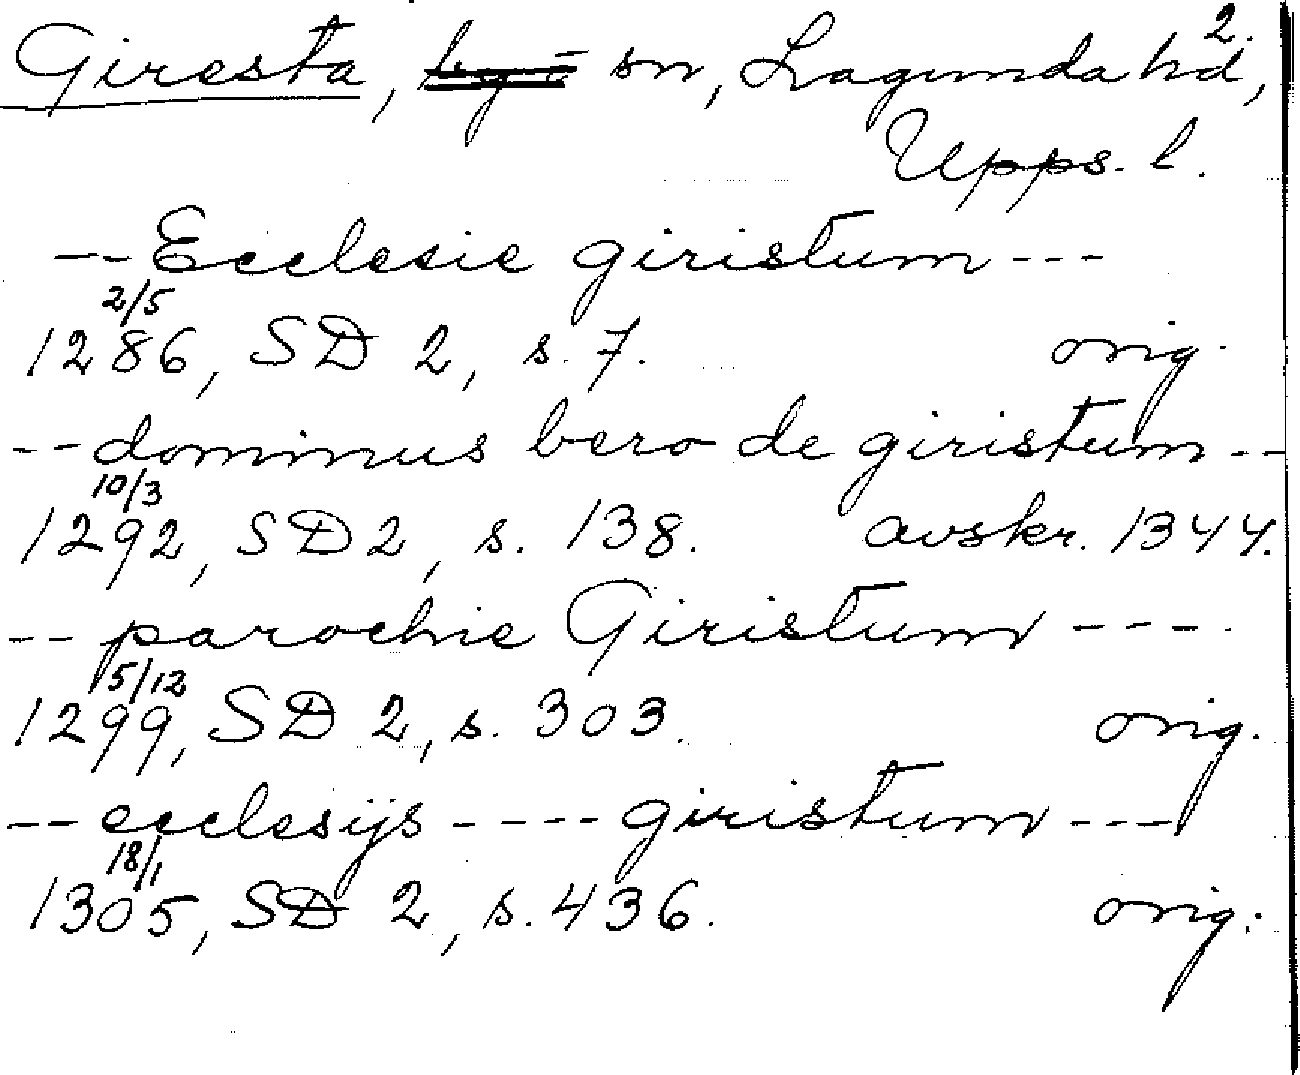 2.
Giresta, by = sn, Lagunda hd,
Upps. l.
-- Ecclesie giristum ---
2/5
1286, SD 2, s. 7. orig.
-- dominus bero de giristum --
10/3
1292, SD 2, s. 138. avskr. 1344.
-- parochie Giristum ----
5/12
1299, SD 2, s. 303. orig.
-- ecclesijs ---- giristum ---
18/1
1305, SD 2, s. 436. orig.